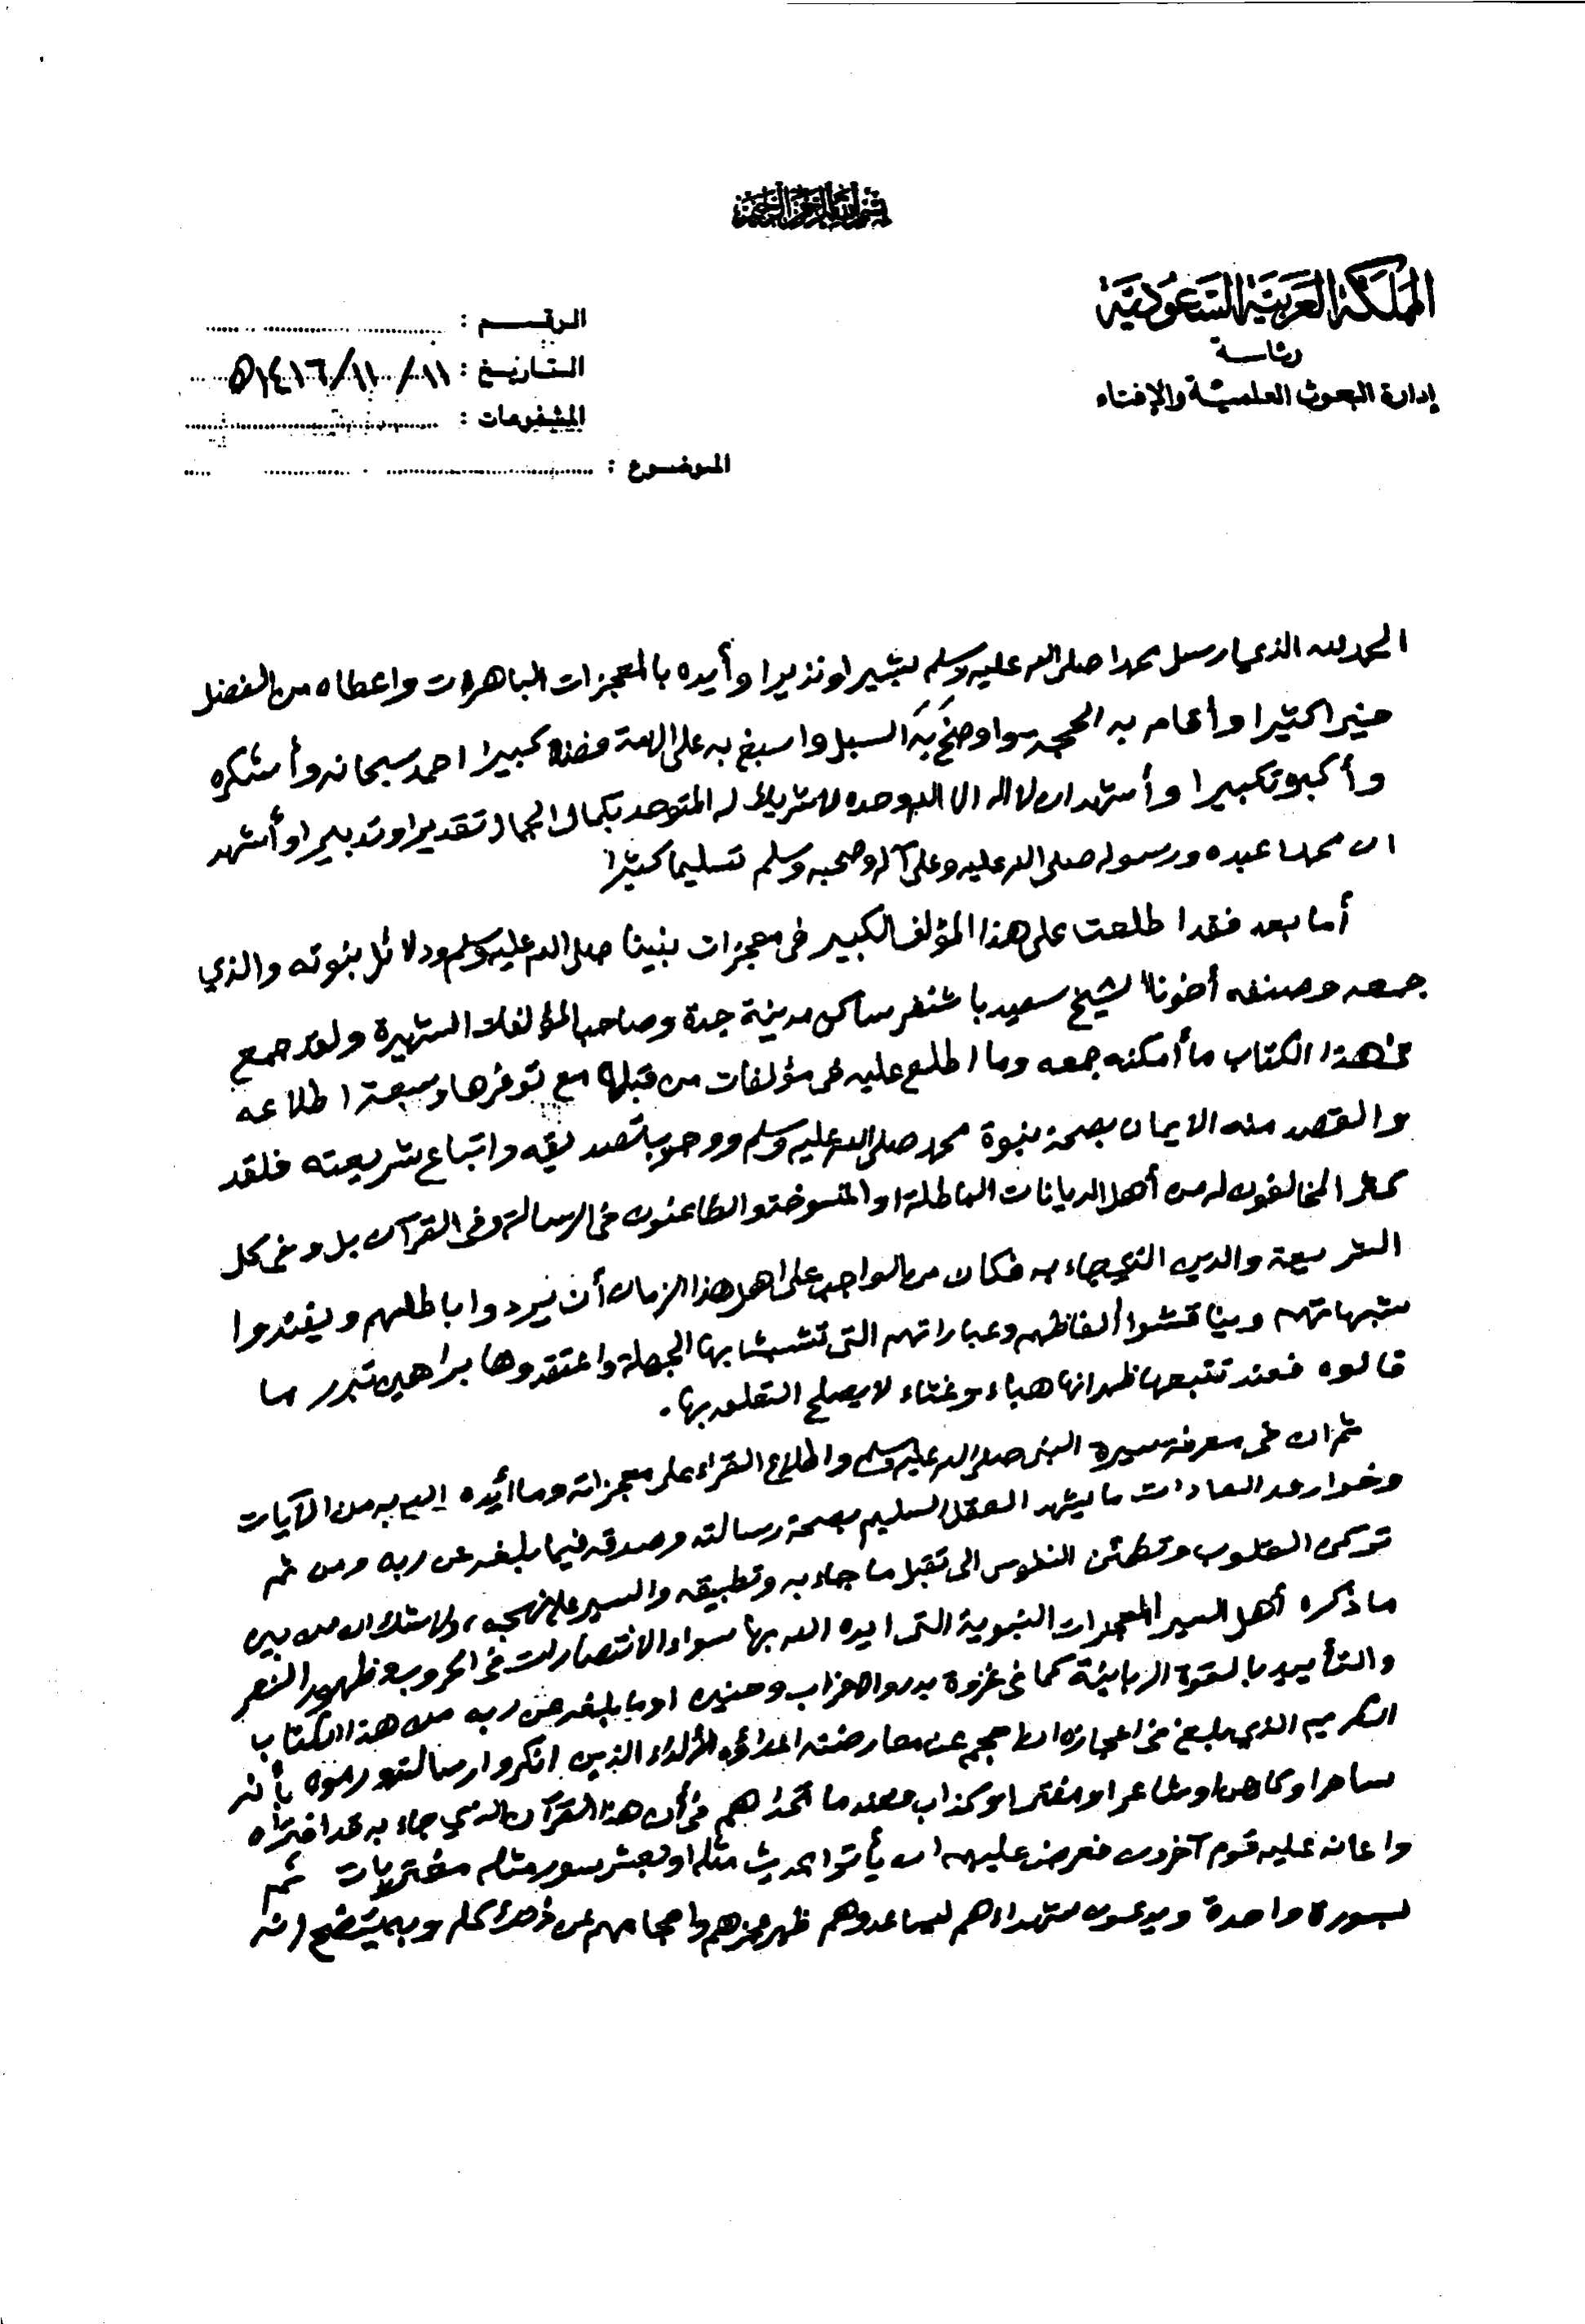 بسم الله الرحمن الرحيم
المملكة العربية السعودية
رئاسة
إدارة البحوث العلمية والإفتاء
الرقم :
التاريخ : ١١/ ١١/ ١٤١٦ه
المشفوعات :
الموضوع :
الحمد لله الذي ارسل محمدا صلى الله عليه وسلم بشيرا ونذيرا وأيده بالمعجزات الباهرات واعطاه من الفضل
خيرا كثيرا وأقام به الحجة واوضح به السبل واسبغ به على الامة فضلا كبيرا احمده سبحانه وأشكره
وأكبره تكبيرا وأشهد ان لا اله الا الله وحده لا شريك له المتوحد بكمال الجمال تقديرا وتدبيرا وأشهد
ان محمدا عبده ورسوله صلى الله عليه وعلى آله وصحبه وسلم تسليما كثيرا
أما بعد فقد اطلعت على هذا المؤلف الكبير في معجزات نبينا صلى الله عليه وسلم ودلائل نبوته والذي
جمعه وصنفه أخونا الشيخ سعيد باشنفر ساكن مدينة جدة وصاحب المؤلفات الشهيرة ولقد جمع
في هذا الكتاب ما أمكنه جمعه وما اطلع عليه في مؤلفات من قبله مع توفرها وسعة اطلاعه
والقصد منه الايمان بصحة نبوة محمد صلى الله عليه وسلم ووجوب تصديقه واتباع شريعته فلقد
كثر المخالفون له من أهل الديانات الباطلة او المنسوخة والطاعنون في الرسالة وفي القرآن بل وفي كل
الشريعة والدين الذي جاء به فكان من الواجب على اهل هذا الزمان أن يردوا باطلهم ويفندوا
شبهاتهم ويناقشوا ألفاظهم وعباراتهم التي تشبث بها الجهلة واعتقدوها براهين تبرر ما
قالوه فعند تتبعها ظهر انها هباء وغثاء لا يصلح التعلق بها .
ثم ان في معرفة سيرة النبي صلى الله عليه وسلم واطلاع القراء على معجزاته وما أيده الله به من الآيات
وخوارق العادات ما يشهد العقل السليم بصحة رسالته وصدقه فيما بلغه عن ربه ومن ثم
تركن القلوب وتطمئن النفوس الى تقبل ما جاء به وتطبيقه والسير على نهجه ، ولا شك ان من بين
ما ذكره أهل السير المعجزات النبوية التي ايده الله بها سواء الانتصارات في الحروب وظهور النصر
والتأييد بالقوة الربانية كما في غزوة بدر والاحزاب وحنين او ما بلغه عن ربه من هذا الكتاب
الكريم الذي بلغ في اعجازه عن معارضته اعداؤه الألداء الذين انكروا رسالته ورموه بأنه
ساحر او كاهن او شاعر او مفتر او كذاب فعندما تحداهم في أن هذا القرآن الذي جاء به قد افتراه
واعانه عليه قوم آخرون فعرض عليهم ان يأتوا بحديث مثله او بعشر سور مثله مفتريات ثم
بسورة واحدة ويدعون شهداءهم ليساعدوهم ظهر عجزهم واحجامهم عن ذلك كله وبه يتضح انه